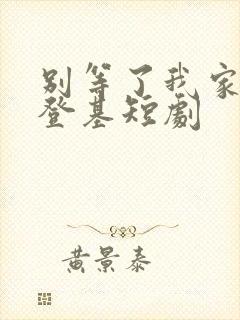 别等了我家
登基短劇
黄景泰